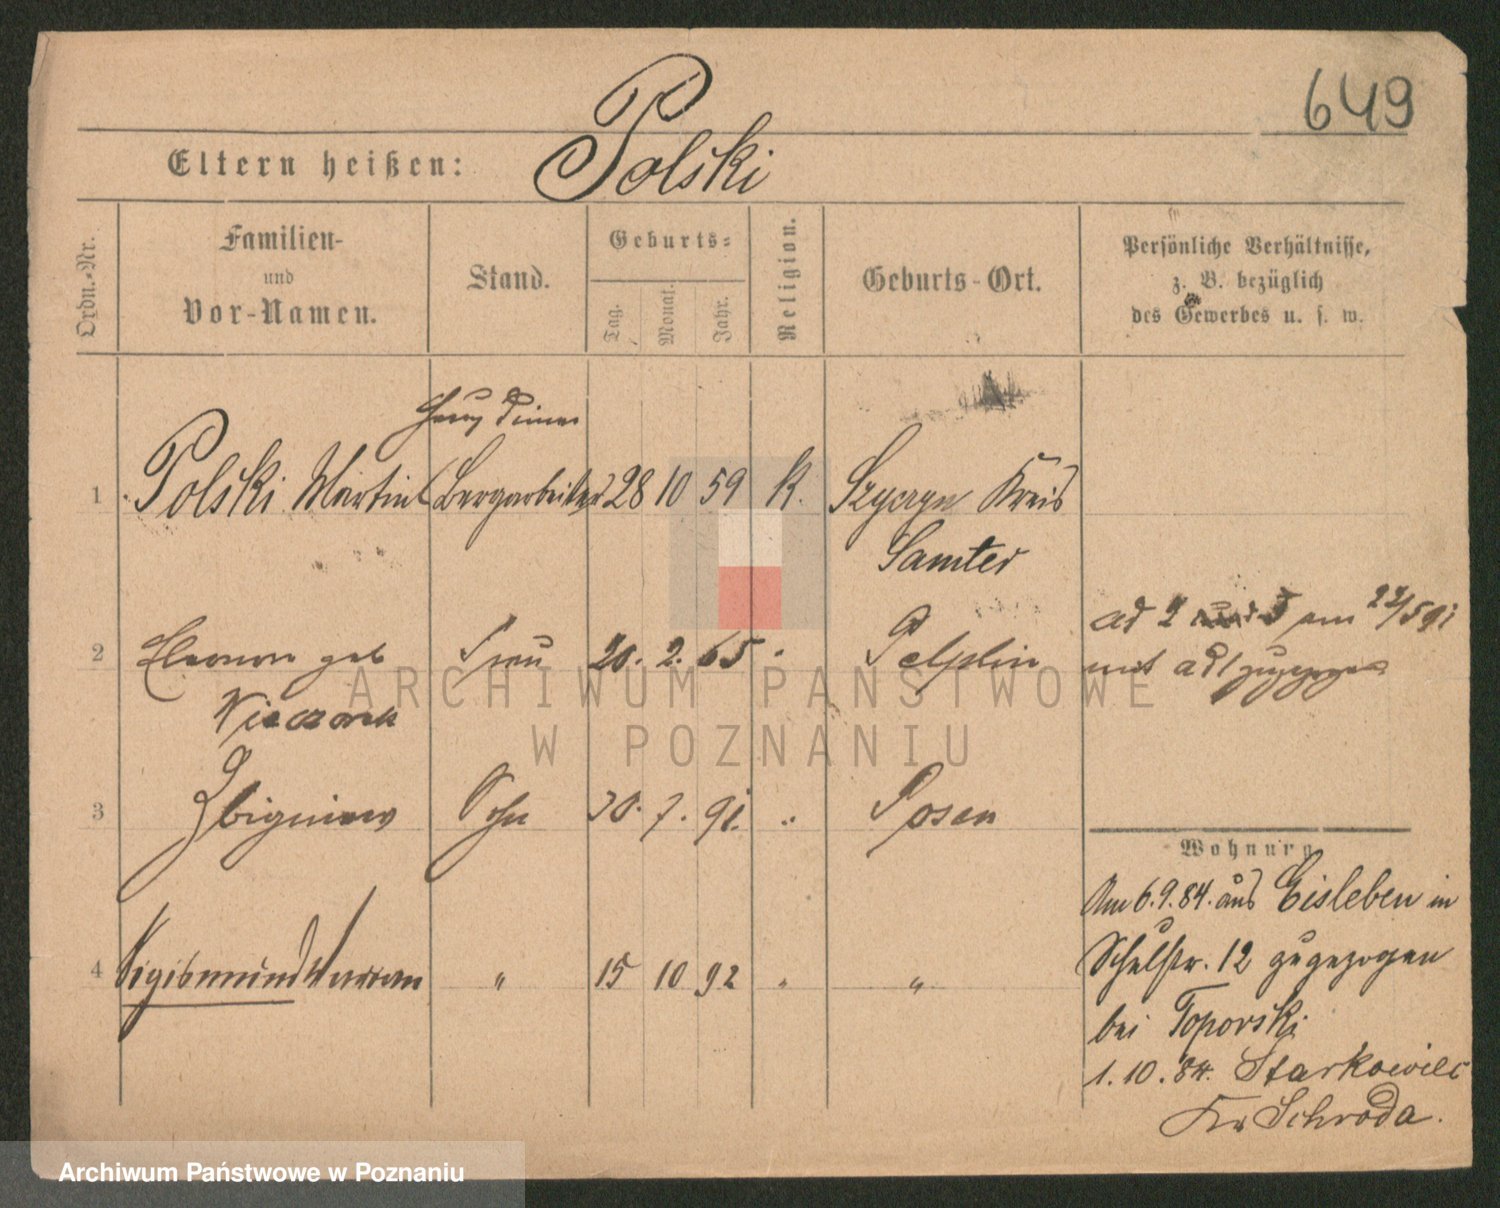 649
Eltern heißen: Polski
Ordn.-Nr.
Familien-
und
Vor-Namen.
Stand.
Geburts-
Tag.
Monat.
Jahr.
Religion.
Geburts-Ort.
Persönliche Verhältnisse,
z. B. bezüglich
des Gewerbes u. s. w.
1 Polski Martin Bergarbeiter 28 10 59 K. Kreis
Samter
2 Eleonore geb Frau 20. 2. 65 " Pelplin
Wieczorek
ad 2 am 22/5 91
mit ad 1 zugezogen
3 Zbigniew Sohn 30. 7. 91. " Posen
4 Sigismund " 15 10 92 " "
Wohnung
Am 6.9.84. aus Eisleben in
Schulstr. 12 zugezogen
bei Toporski
1.10.84. Starkowiec
Kr Schroda.
ARCHIWUM PAŃSTWOWE
W POZNANIU
Archiwum Państwowe w Poznaniu